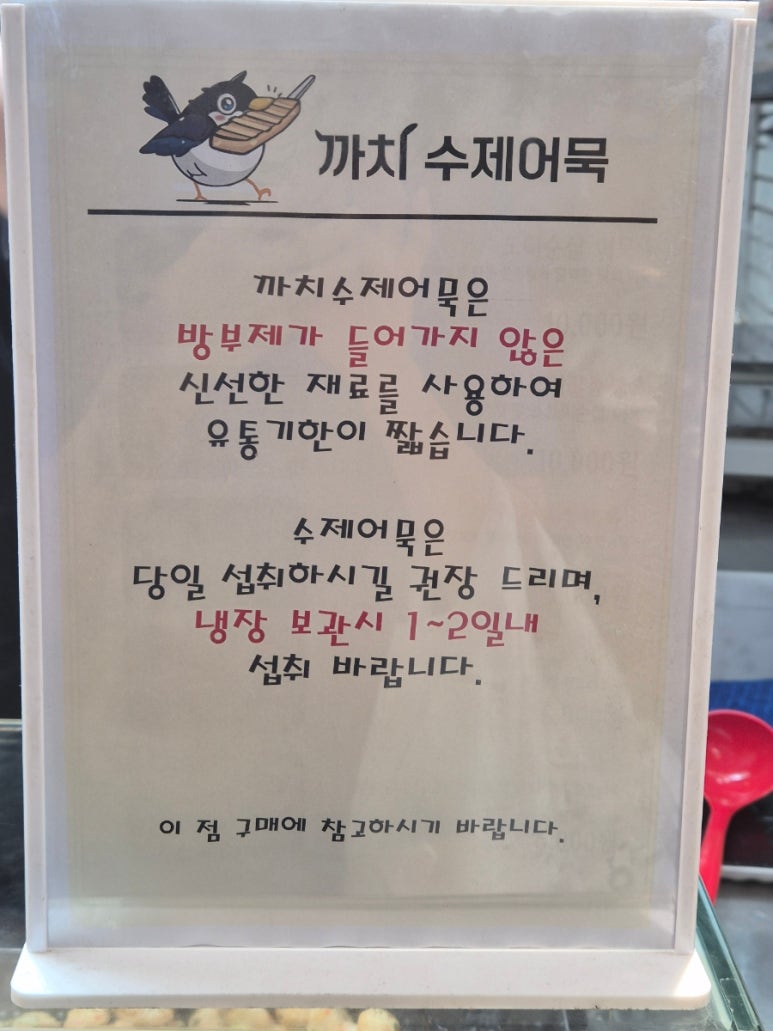 까치 수제어묵
까치수제어묵은
방부제가 들어가지 않은
신선한 재료를 사용하여
유통기한이 짧습니다.
수제어묵은
당일 섭취하시길 권장 드리며,
냉장 보관시 1~2일내
섭취 바랍니다.
이 점 구매에 참고하시기 바랍니다.